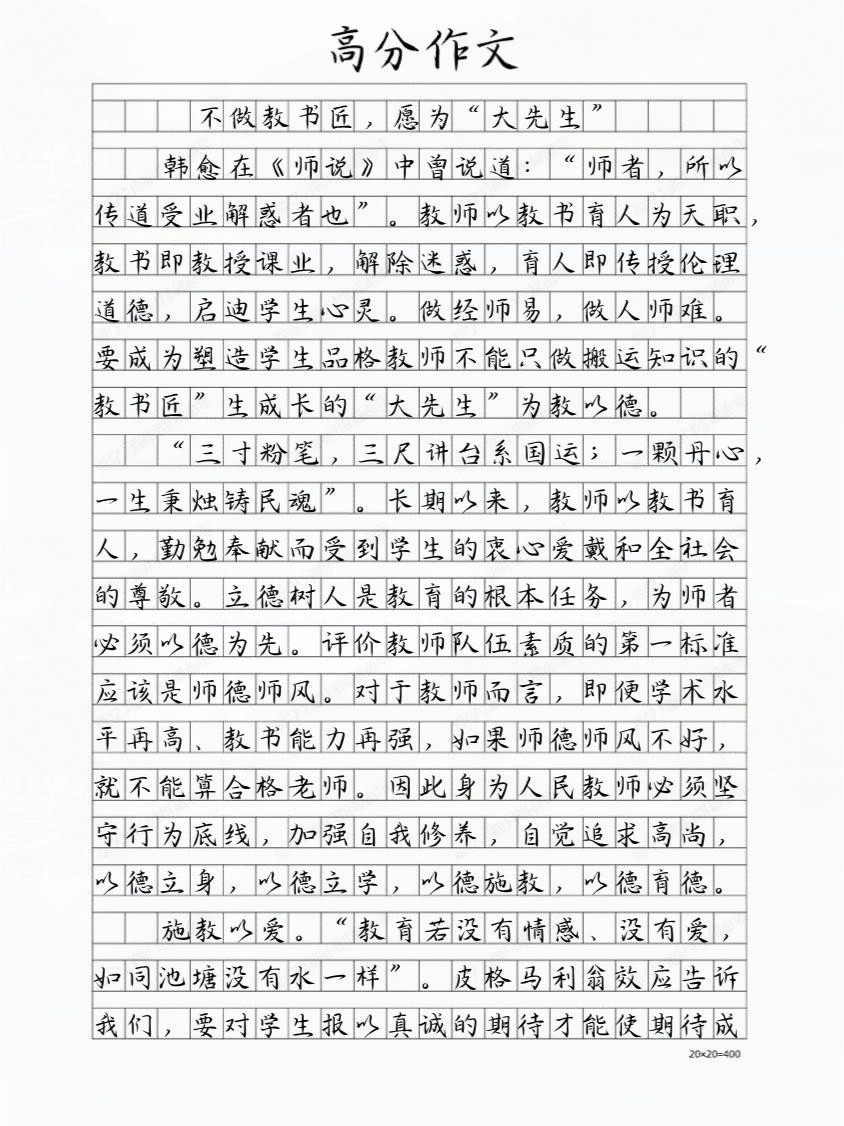 高分作文
不做教书匠，愿为“大先生”
韩愈在《师说》中曾说道：“师者，所以
传道受业解惑者也”。教师以教书育人为天职，
教书即教授课业，解除迷惑，育人即传授伦理
道德，启迪学生心灵。做经师易，做人师难。
要成为塑造学生品格教师不能只做搬运知识的“
教书匠”生成长的“大先生”为教以德。
“三寸粉笔，三尺讲台系国运；一颗丹心，
一生秉烛铸民魂”。长期以来，教师以教书育
人，勤勉奉献而受到学生的衷心爱戴和全社会
的尊敬。立德树人是教育的根本任务，为师者
必须以德为先。评价教师队伍素质的第一标准
应该是师德师风。对于教师而言，即便学术水
平再高、教书能力再强，如果师德师风不好，
就不能算合格老师。因此身为人民教师必须坚
守行为底线，加强自我修养，自觉追求高尚，
以德立身，以德立学，以德施教，以德育德。
施教以爱。“教育若没有情感、没有爱，
如同池塘没有水一样”。皮格马利翁效应告诉
我们，要对学生报以真诚的期待才能使期待成
20×20=400